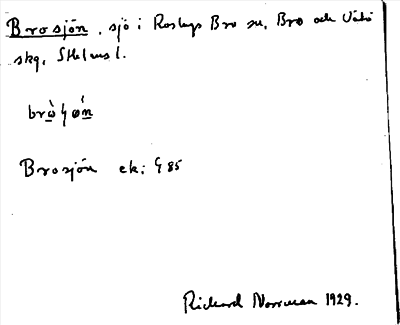 Brosjön, sjö i Roslags Bro sn, Bro och Vätö
skg, Sthlms l.
Brosjön ek: 485
Richard Norrman 1929.